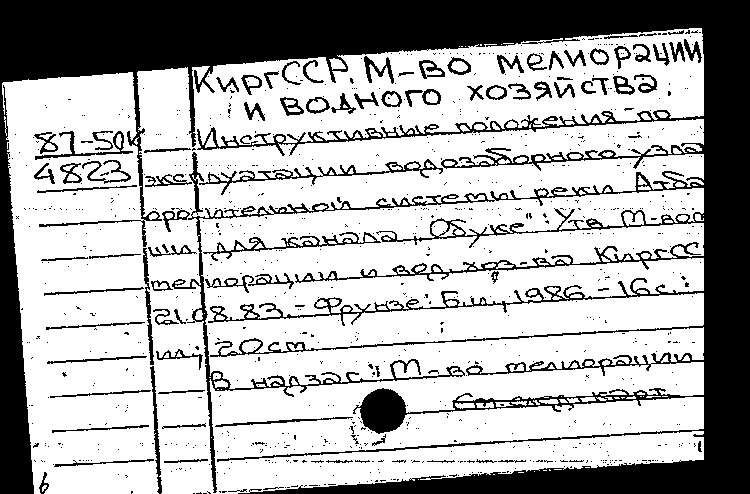 КиргССР. М-во мелиорации
и водного хозяйства.
87-50К Инструктивные положения по
4823 эксплуатации водозаборного узла
оросительной системы реки Атба
ши для канала „Обуке": Утв. М-вом
мелиорации и вод. хоз-ва КиргСС
21.08.83. - Фрунзе: Б.и., 1986. - 16 с.:
ил.; 20 см.
В надзаг.: М-во мелиорации
См. след. карт.
6